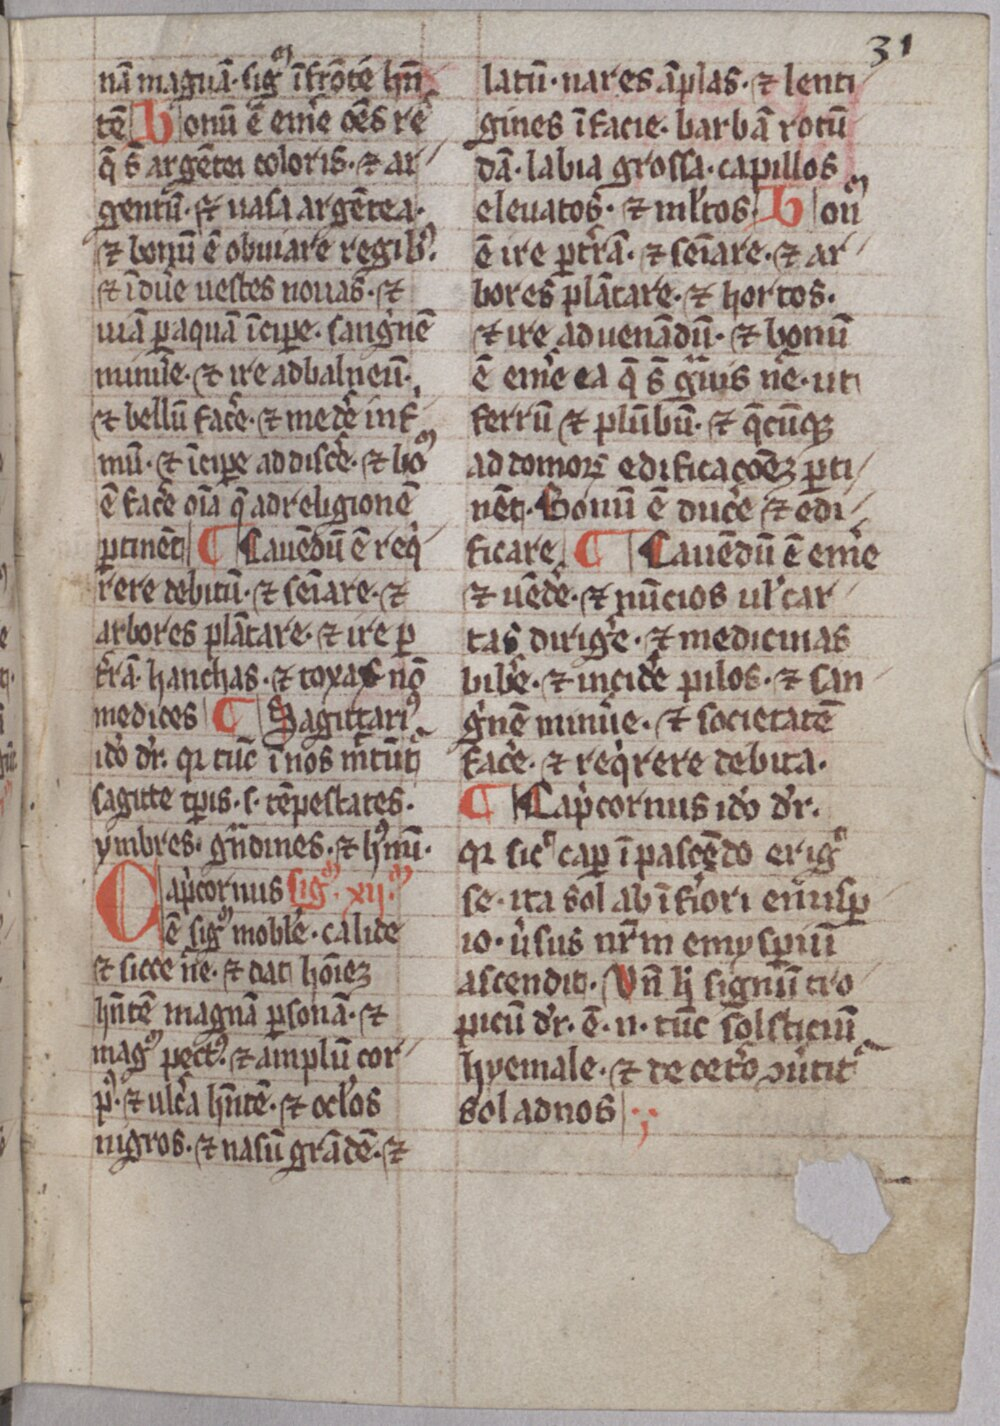 31
nā magnā· sigͫ ī frōte hn̄
tē Bonū ē em̄e oēs re
q̄ s̄ argētei coloris· ⁊ ar
gentū· ⁊ uasa argētea·
⁊ bonū ē obuiare regibꝰ·
⁊ īdu̾e uestes nouas· ⁊
uiā ꝑ aquā īciꝑe· sangͥnē
minu̾e· ⁊ ire ad balneū·
⁊ bellū fac̾e· ⁊ med̾e inf̾
mū· ⁊ īciꝑe addisc̾e· ⁊ boͫ
ē fac̾e oīa q̄ ad religionē
ꝑtinēt ¶ Cauēdū ē reqͥ
rere debitū· ⁊ semīare· ⁊
arbores plātare· ⁊ ire ꝑ
t̾rā· hanchas· ⁊ coxas nō
medices ¶ Sagittariꝰ
iđo dr̄· qꝛ tūc ī nos mͥtūt̾
sagitte tꝑis· s· tēpestates·
ymbres· gͣndines· ⁊ hꝰmōi·
Capͥcornus sigͫ· xijͫ·
ē sigͫ mobłe· calide
⁊ sicce nͣe· ⁊ dat hōīeꝫ
hn̄tē magnā ꝑsonā· ⁊
magͫ pectꝰ· ⁊ amplū cor
pꝰ· ⁊ ulc̾a hn̄tē· ⁊ ocłos
nigros· ⁊ nasū grādē· ⁊
latū· nares āplas· ⁊ lenti
gines ī facie· barbā rotū
dā· labia grossa· capillos
eleuatos· ⁊ młtos· Bonͫ
ē ire ꝑ t̾rā· ⁊ semīare· ⁊ ar
bores plātare· ⁊ hortos·
⁊ ire ad uenādū· ⁊ bonū
ē em̾e ea q̄ s̄ gͣuis nͣe· ut
ferrū ⁊ plūbū· ⁊ q̄cūqꝫ
ad domoꝝ edificacōēꝫ ꝑti
nēt· Bonū ē duc̾e ⁊ edi
ficare ¶ Cauēdū ē em̾e
⁊ uēd̾e· ⁊ nūcios uł car
tas dirig̾e· ⁊ medicinas
bib̾e· ⁊ incid̾e pilos· ⁊ san
gͥnē minu̾e· ⁊ societatē
fac̾e· ⁊ reqͥrere debita·
¶ Capͥcornus iđo dr̄·
qꝛ sicͧ cap̄ ī pascēdo erigͭ
se· ita sol ab īf̾iori emisꝑ
io· u̾sus nr̄m emysꝑiū
ascendit· Vn̄ ħ signū tro
picū dr̄· ē· n· tūc solsticiū
hyemale· ⁊ de cet̾o ꝯu̾tit̾
sol ad nos